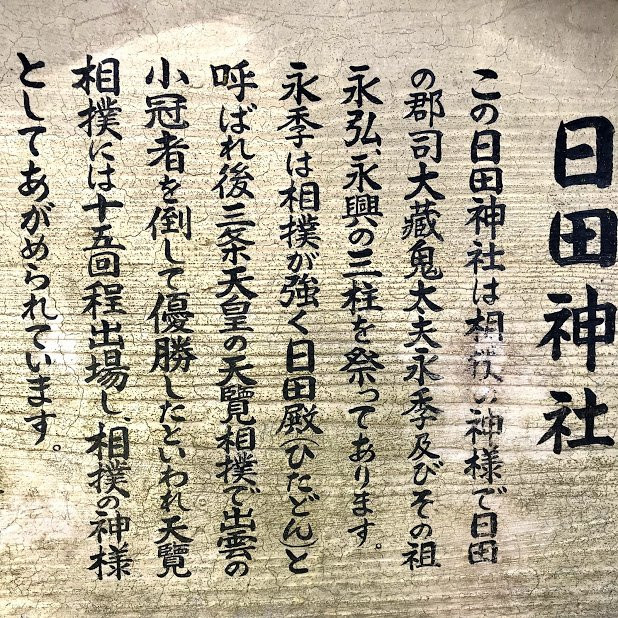 日田神社
この日田神社は相撲の神様で日田
の郡司大藏鬼太夫永季及びその祖
永弘、永興の三柱を祭ってあります。
永季は相撲が強く日田殿(ひたどん)と
呼ばれ後三条天皇の天覽相撲で出雲の
小冠者を倒して優勝したといわれ天覽
相撲には十五回程出場し、相撲の神様
としてあがめられています。